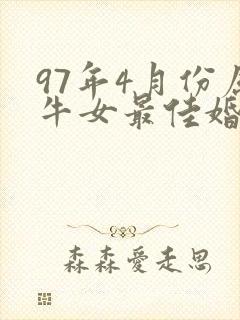 97年4月份
牛女最佳婚
森森爱走思